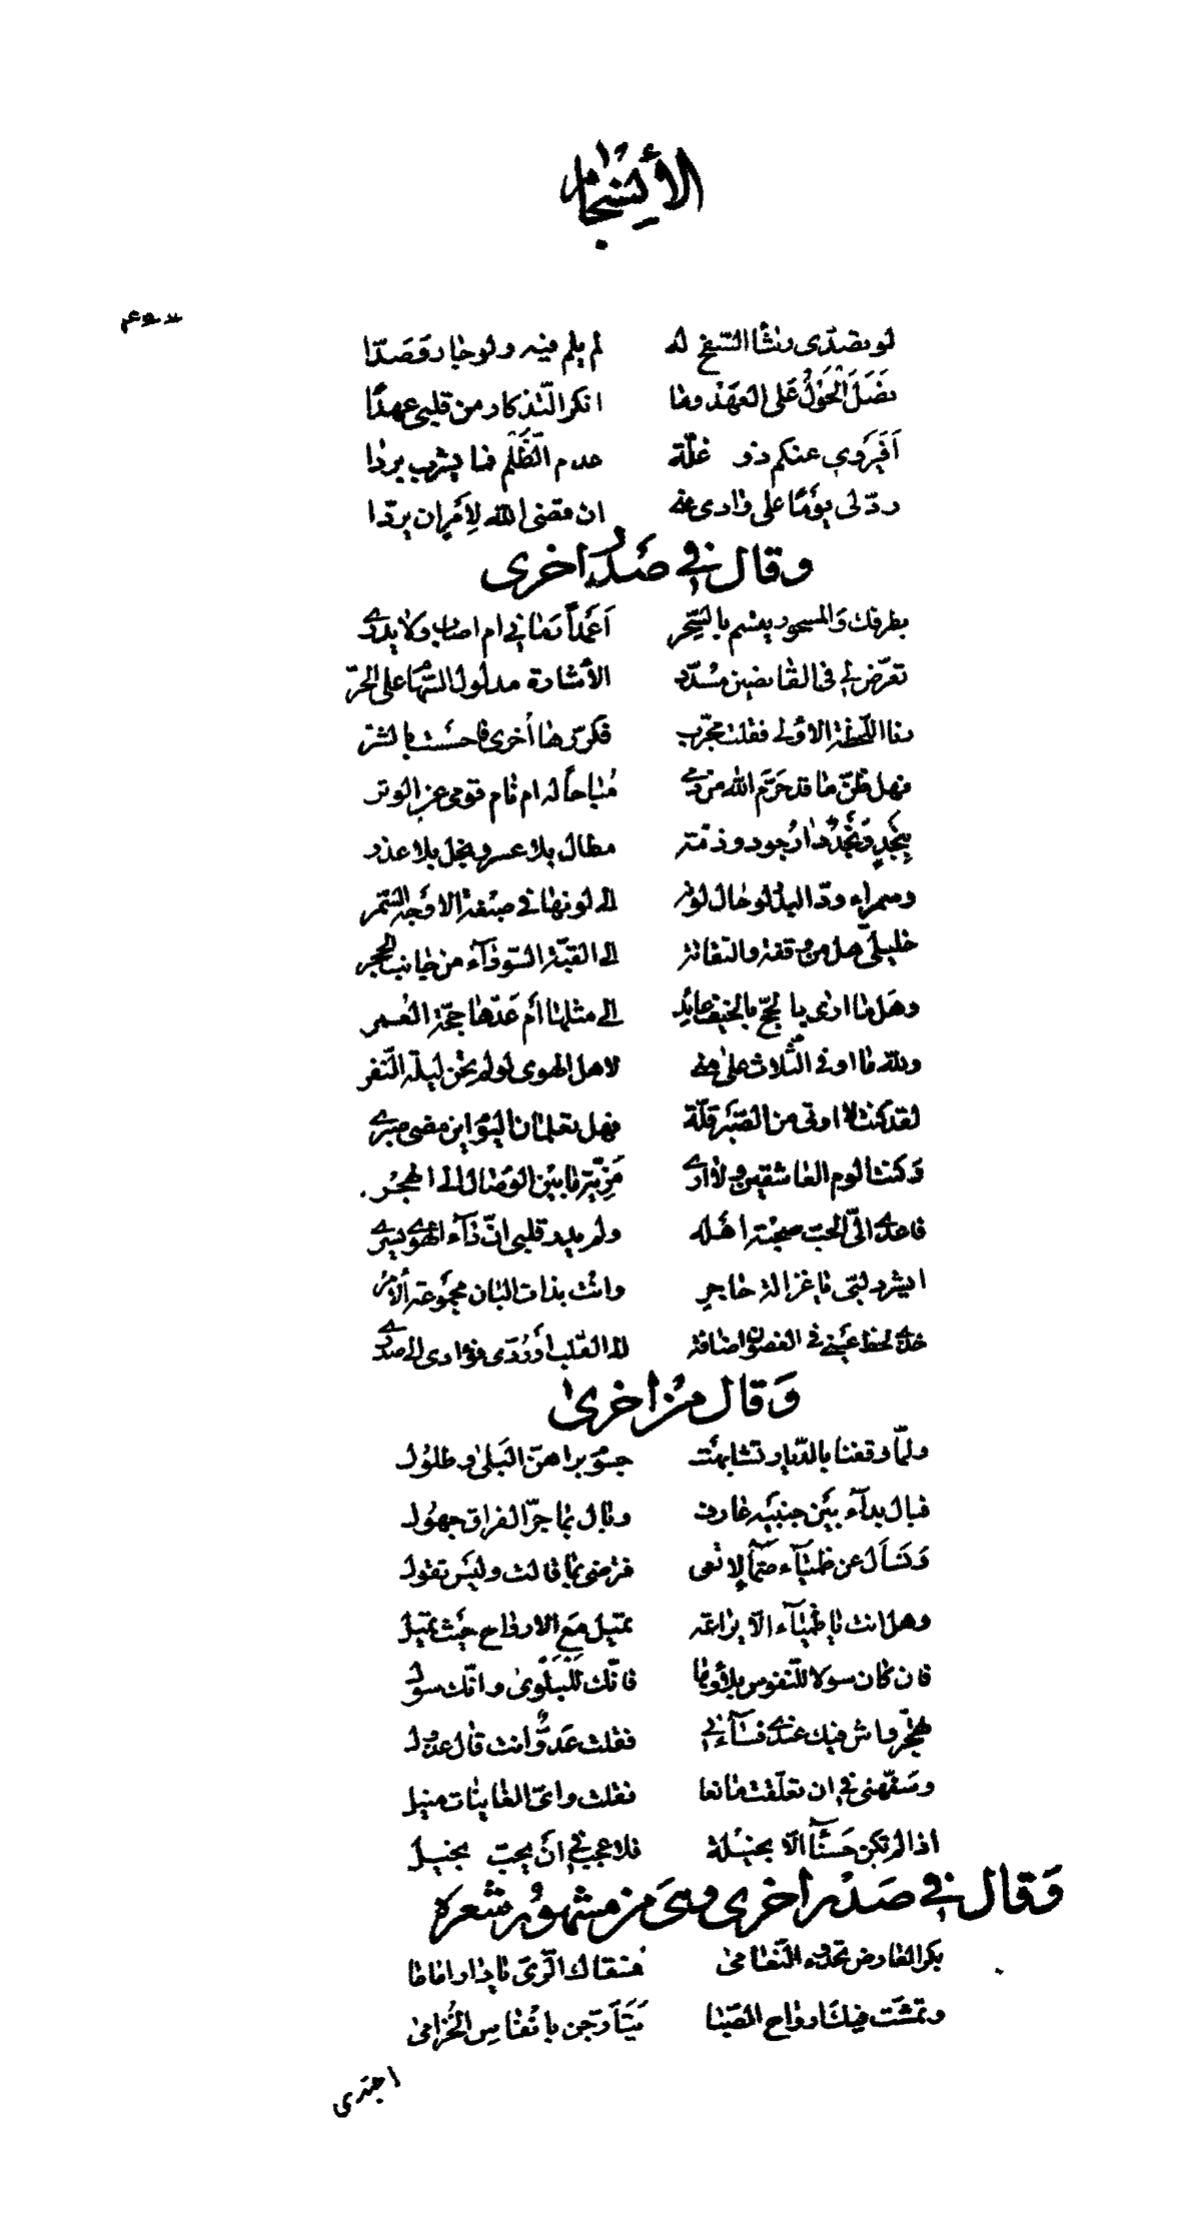 الأنسجام
لو تصدى رشأ السفح له لم يلم فيه ولو جار وصدا
يضل الحول على العهد وما انكر التذكار من قلبي عهدا
أفيروي عنكم ذو غلة عدم الظلم فما يشرب بردا
رد لي يومًا على وادي منه ان قضى الله لأمر ان يردا
وقال في صدر اخرى
بطرفك والمسحور يقسم بالسحر أعمدًا رماني ام اصاب ولا يدري
تعرض لي في القانصين مسدد الأشارة مدلول السهام على النحر
رنا اللحظة الاولى فقلت مجرب فكررها أخرى فاحسست بالشر
فهل ظن ما قد حرم الله من دمي مباحًا له ام نام قومي عن الوتر
بنجد ونجد دار جود وذمة مطال بلا عسر وبخل بلا عذر
وسمراء ود البدر لو حال لونه الى لونها في صبغة الاوجه السمر
خليلي هل من وقفة والتفاتة الى القبة السوداء من جانب الحجر
وهل ما ارى بالحج بالخيف عائد الى مثلها أم عدها حجة العمر
ولله ما اوفى الثلاث على منى لاهل الهوى لو لم تحن ليلة النفر
لقد كنت لا اوتى من الصبر قلة فهل تعلمان اليوم اين مضى صبري
وكنت الوم العاشقين ولا ارى مزية ما بين الوصال الى الهجر
فاعدى الي الحب صحبة أهله ولم يدر قلبي ان داء الهوى يسري
ايشرد لبي يا غزالة حاجر وانت بذات البان مجموعة الأمر
خذي لحظ عيني في الغصون اضافة الى القلب أو ردي فؤادي الى صدري
وقال من أخرى
ولما وقفنا بالديار وتشابهت جسوم براهن البلى وطلول
فباك بداء بين جنبيه عارف وباك بما جر الفراق جهول
ونسأل عن ظمياء صماء لا تعي فنرضى بما قالت وليس تقول
وهل انت يا ظمياء الا يراعة تميل مع الارواح حيث تميل
فان كان سولا للنفوس بلأوها فانك للبلوى وانك سول
فقلت عدو انت قال عذول
وسفهني في ان تعلقت مانعا فقلت واي الغانيات منيل
اذا لم تكن حسنآ الا بخيلة فلا عجب في أن يحب بخيل
وقال في صدر اخرى وهى من مشهور شعره
بكر العارض تحدوه النعامى فسقاك الري يا دار اماما
وتمشت فيك ارواح الصبا يتأرجن بانفاس الخزامى
اجتدى